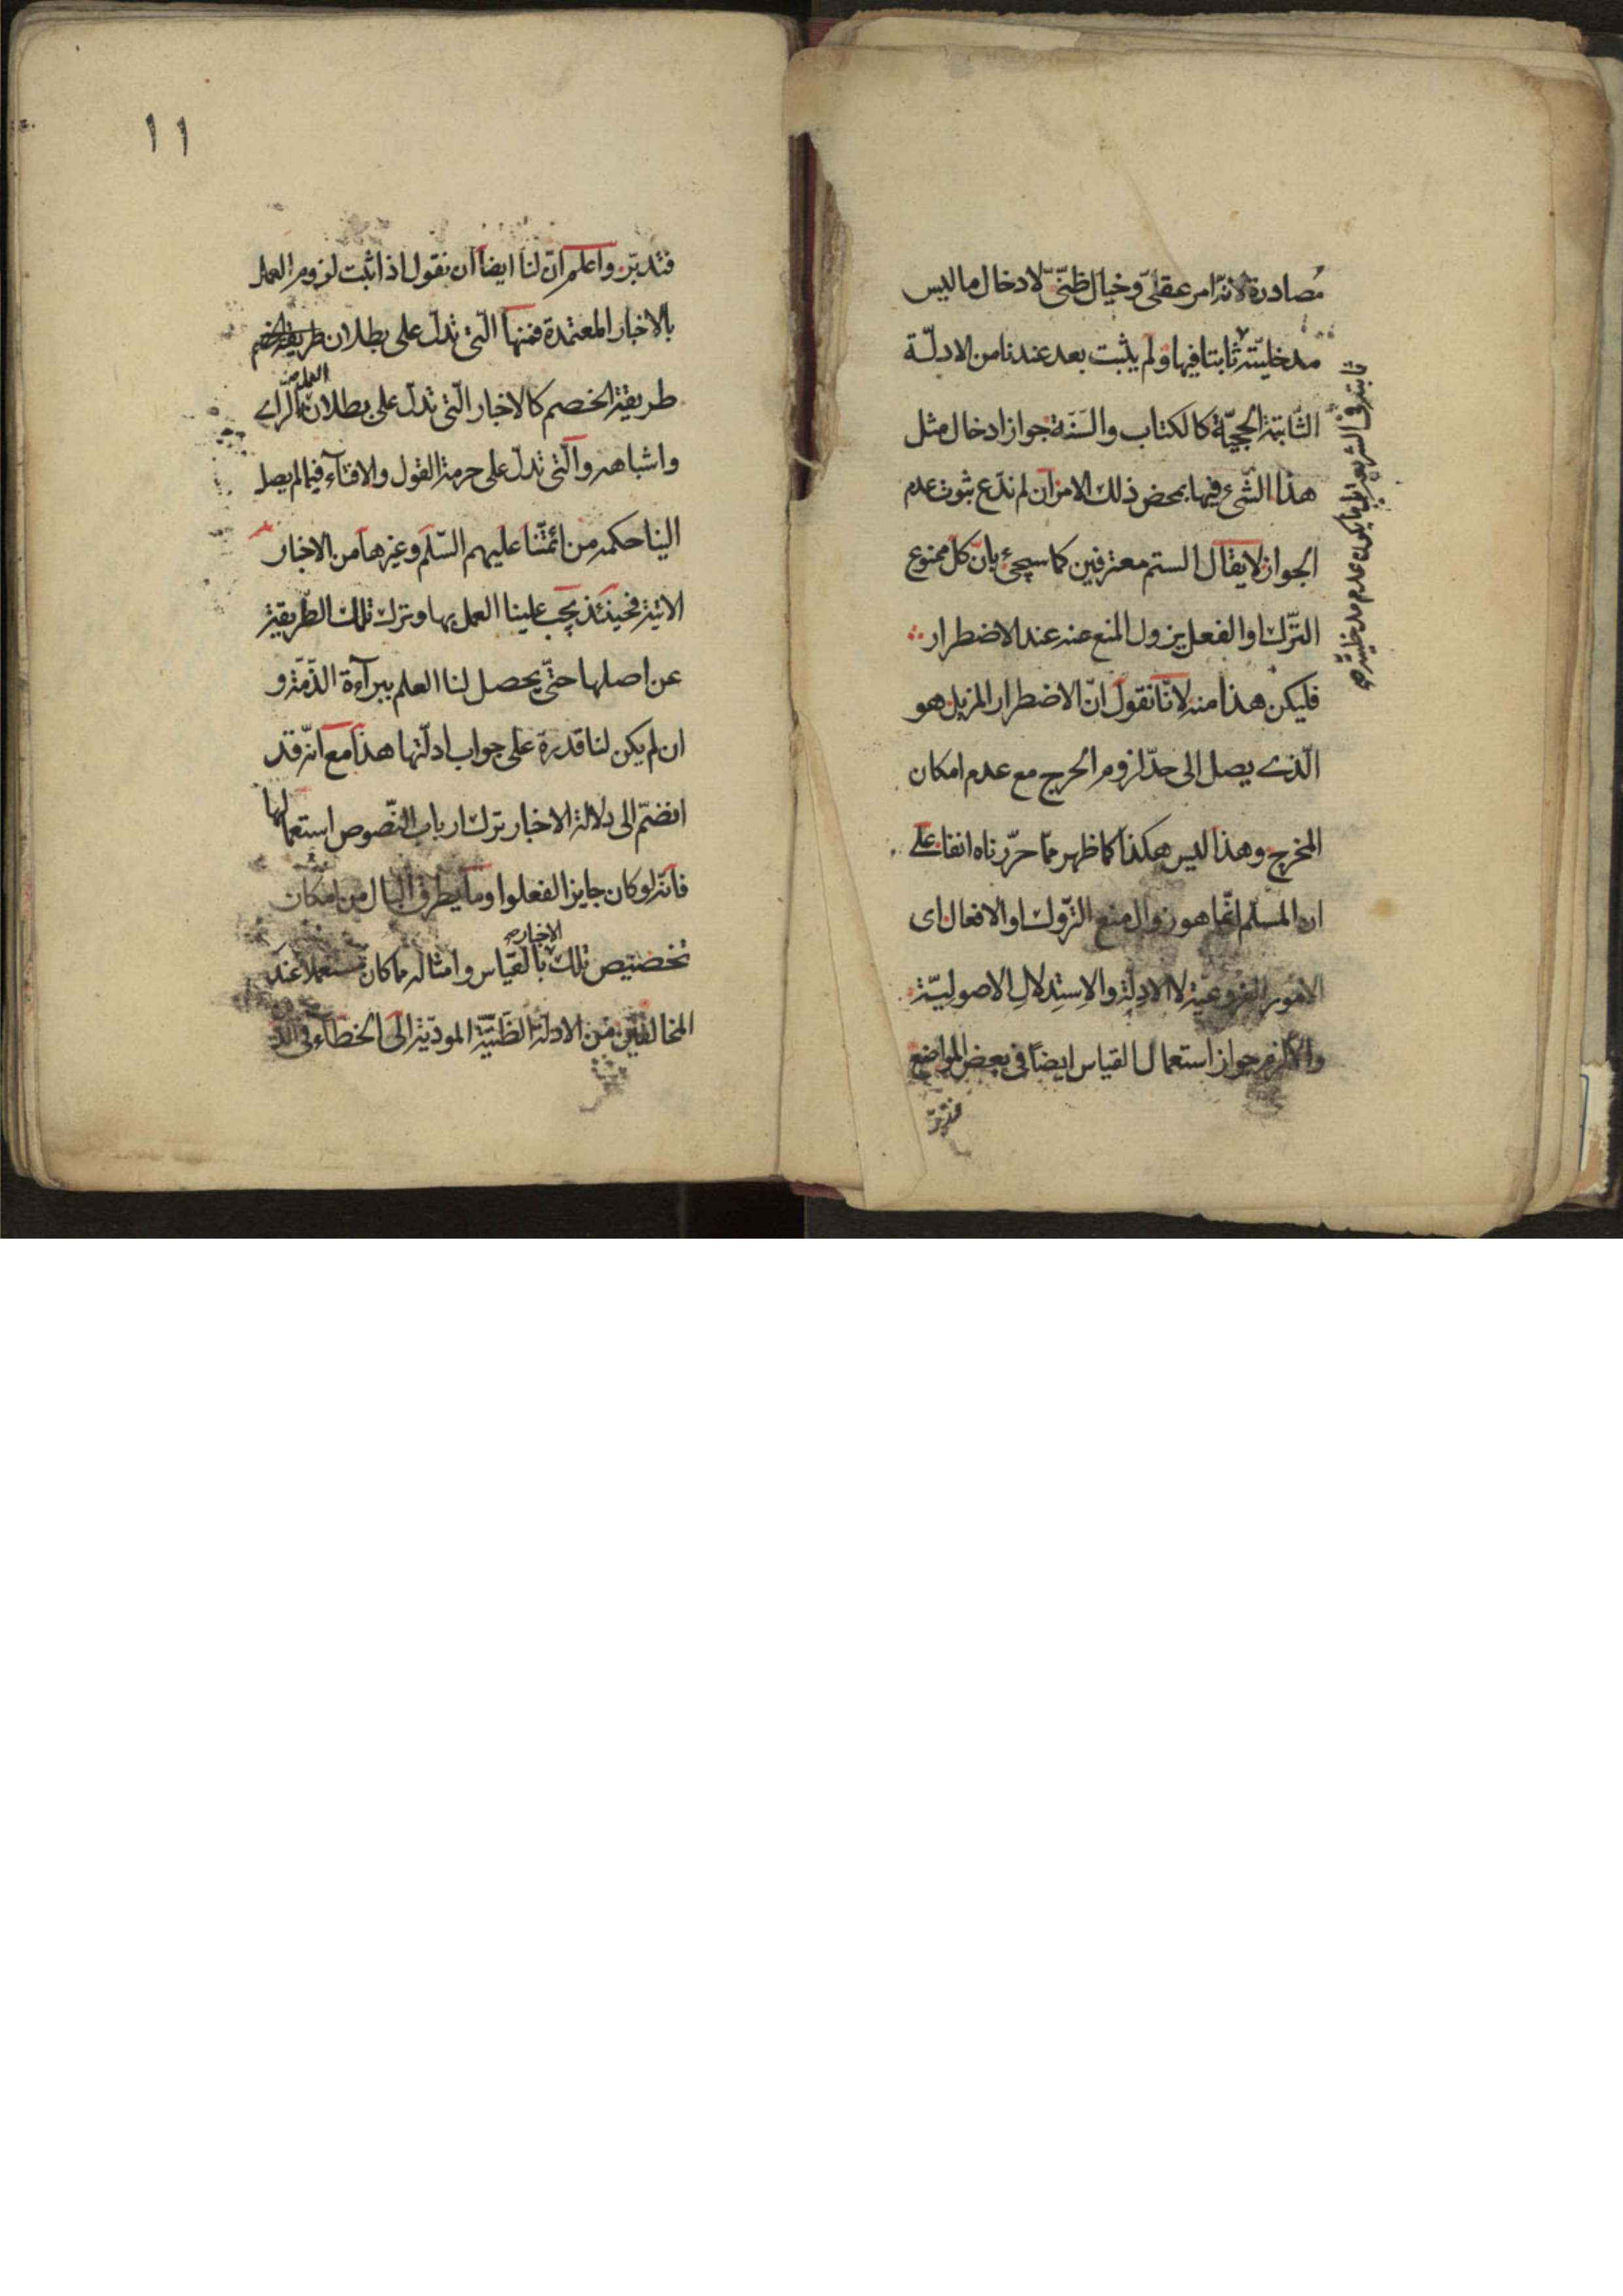 مصادرة لانه امر عقلىّ وخيال ظنّىّ لادخال ما ليس
مدخليته ثابتا فيها ولم يثبت بعد عندنا من الادلّة
الثّابتة الحجيّة كالكتاب والسّنة جواز ادخال مثل
هذا الشّىء فيها بمحض ذلك الامر ان لم ندّع ثبوت عدم
الجواز لا يقال الستم معترفين كما سيجىء بانّ كلّ ممنوع
التّرك او الفعل يزول المنع عنه عند الاضطرار
فليكن هذا منه لانّا نقول انّ الاضطرار المزيل هو
الّذى يصل الى حدّ لزوم الحرج مع عدم امكان
المخرج وهذا ليس هكذا كما ظهر ممّا حرّرناه انفا على
ان المسلم انّما هو زوال منع التّروك او الافعال اى
الامور الفروعيّة لا الادلة والاستدلال الاصوليّة
والا لزم جواز استعمال القياس ايضاً فى بعض المواضع
فتدبّر
ثابتة فى الشريعة عدم مدخليته
١١
فتدبّر واعلم انّ لنا ايضاً ان نقول اذا ثبت لزوم العمل
بالاخبار المعتمدة فمنها الّتى تدلّ على بطلان طريقة الخصم
طريقة الخصم كالاخبار الّتى تدلّ على بطلان العمل بالراى
واشباهه والّتى تدلّ على حرمة القول والافتآء فيما لم يصل
الينا حكمه من ائمّتنا عليهم السّلم وغيرها من الاخبار
الاتية فحينئذ يجب علينا العمل بها وترك تلك الطّريقة
عن اصلها حتّى يحصل لنا العلم ببرآءة الذّمّة و
ان لم يكن لنا قدرة على جواب ادلّتها هذا مع انّه قد
انضمّ الى دلالة الاخبار ترك ارباب النّصوص استعمالها
فانّه لو كان جايز الفعلوا وما يطرق البال من امكان
تخصيص تلك الاخبار بالقياس وامثاله ما كان مستعملا عند
المخالفين من الادلة الظنّيّة المودّية الى الخطآء فى الد